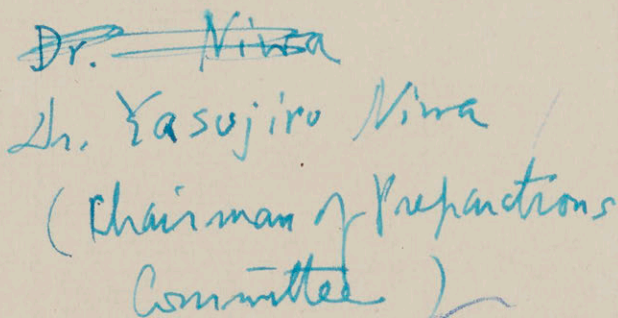 Dr. Niwa
Dr. Yasujiro Niwa
(Chairman of Preparations
Committee)